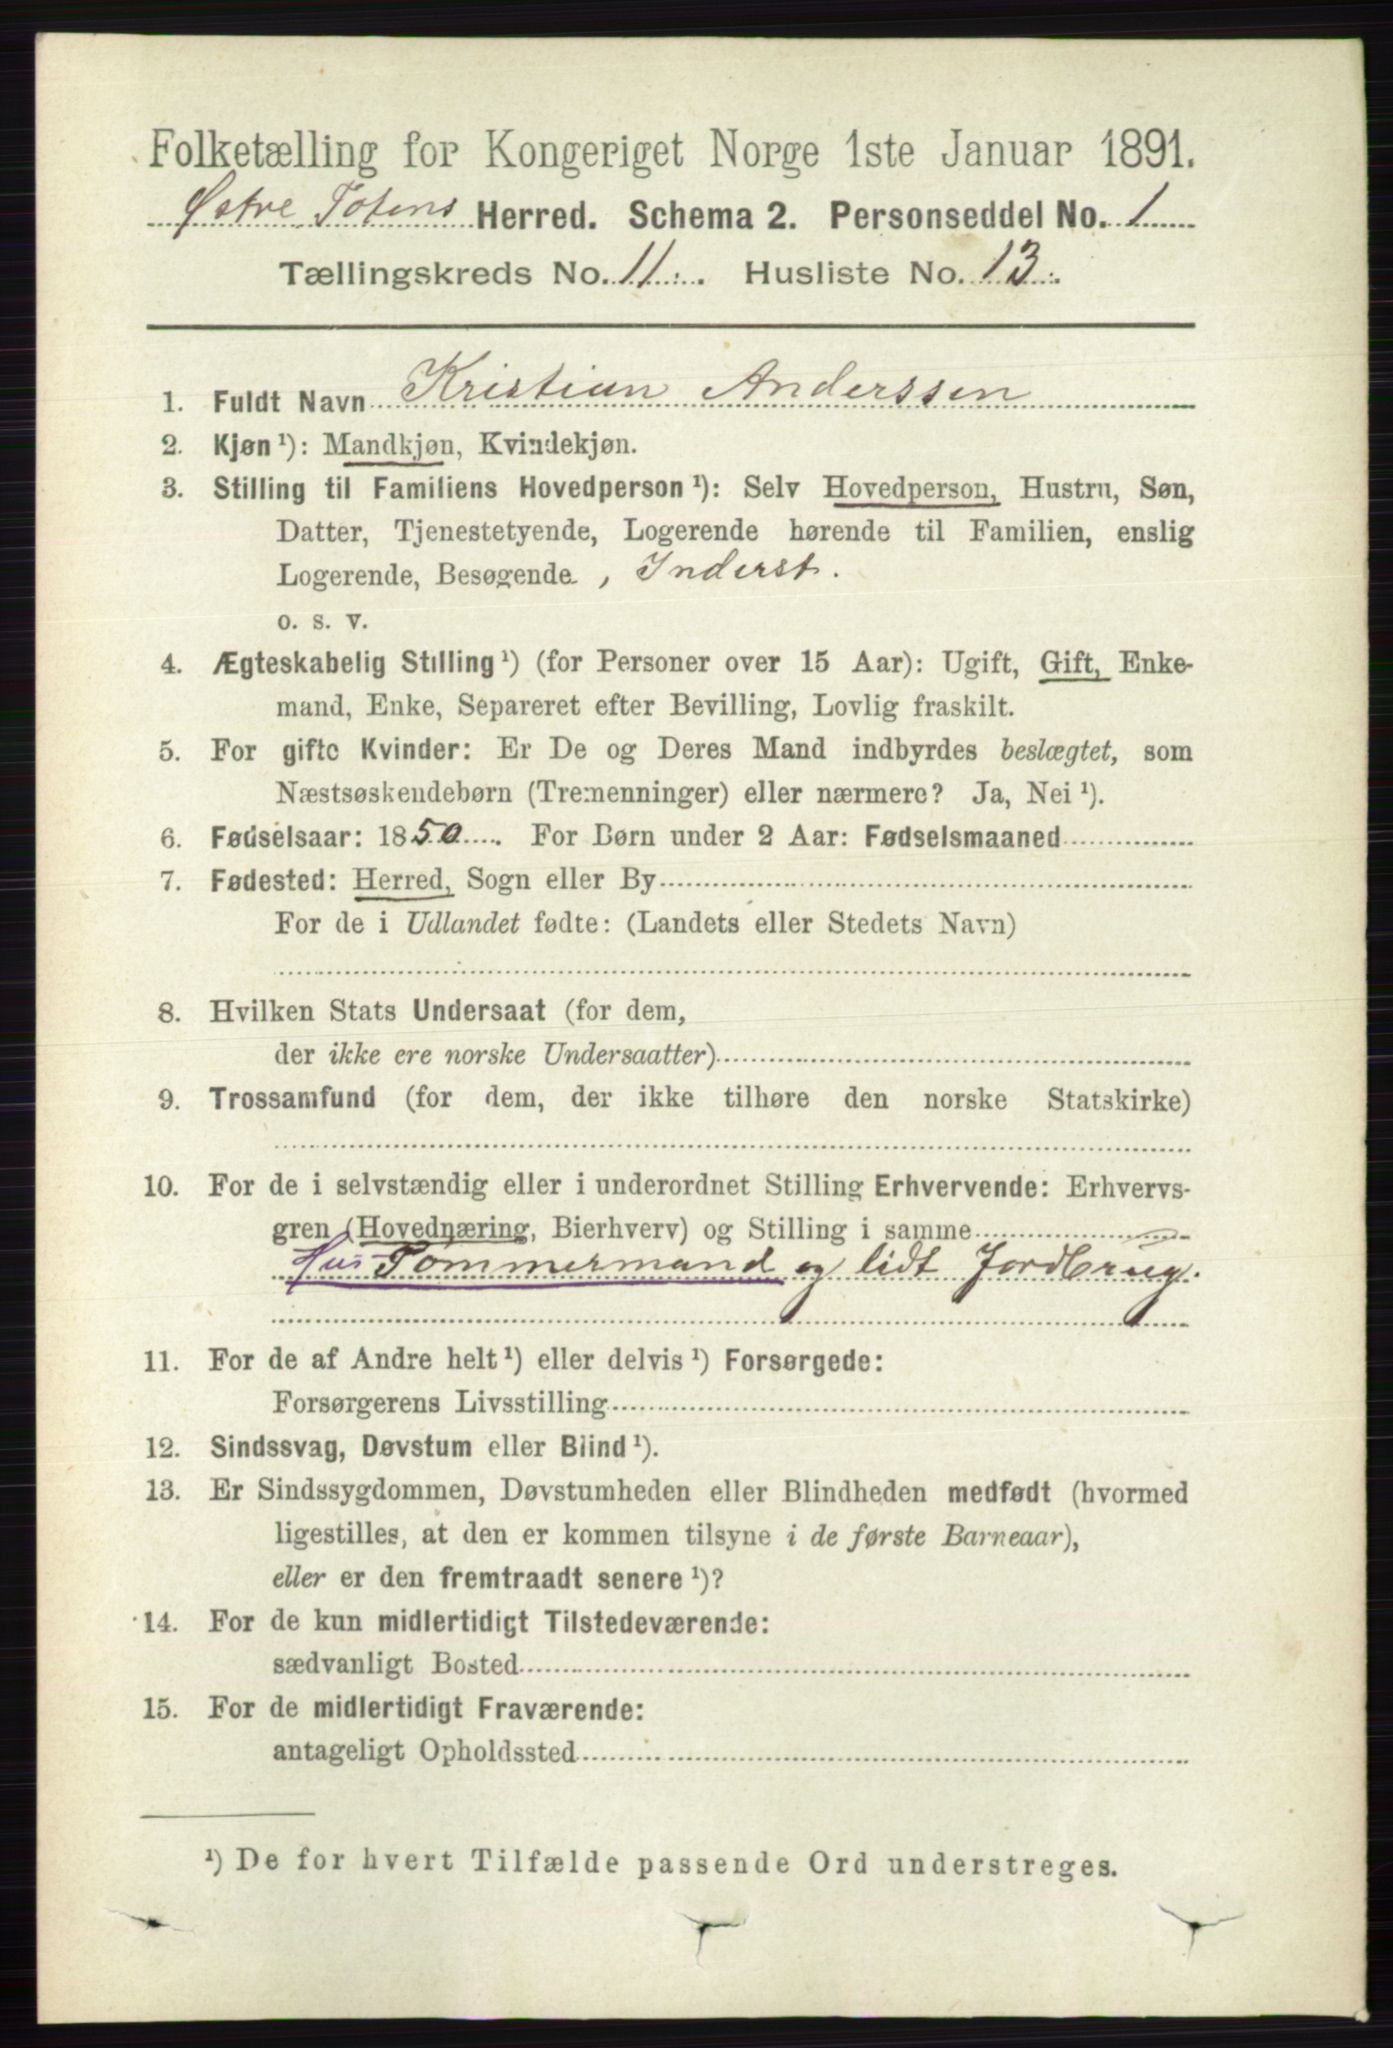 Folketælling for Kongeriget Norge 1ste Januar 1891.
Østre Totens Herred. Schema 2. Personseddel No. 1
Tællingskreds No. 11. Husliste No. 13.
1. Fuldt Navn Kristian Anderssen
2. Kjøn¹): Mandkjøn, Kvindekjøn.
3. Stilling til Familiens Hovedperson¹): Selv Hovedperson, Hustru, Søn,
Datter, Tjenestetyende, Logerende hørende til Familien, enslig
Logerende, Besøgende, Inderst.
o. s. v.
4. Ægteskabelig Stilling¹) (for Personer over 15 Aar): Ugift, Gift, Enke-
mand, Enke, Separeret efter Bevilling, Lovlig fraskilt.
5. For gifte Kvinder: Er De og Deres Mand indbyrdes beslægtet, som
Næstsøskendebørn (Tremenninger) eller nærmere? Ja, Nei¹).
6. Fødselsaar: 1850. For Børn under 2 Aar: Fødselsmaaned
7. Fødested: Herred, Sogn eller By
For de i Udlandet fødte: (Landets eller Stedets Navn)
8. Hvilken Stats Undersaat (for dem,
der ikke ere norske Undersaatter)
9. Trossamfund (for dem, der ikke tilhøre den norske Statskirke)
10. For de i selvstændig eller i underordnet Stilling Erhvervende: Erhvervs-
gren (Hovednæring, Bierhverv) og Stilling i samme
Hus Tømmermand og lidt Jordbrug.
11. For de af Andre helt¹) eller delvis¹) Forsørgede:
Forsørgerens Livsstilling
12. Sindssvag, Døvstum eller Blind¹).
13. Er Sindssygdommen, Døvstumheden eller Blindheden medfødt (hvormed
ligestilles, at den er kommen tilsyne i de første Barneaar),
eller er den fremtraadt senere¹)?
14. For de kun midlertidigt Tilstedeværende:
sædvanligt Bosted
15. For de midlertidigt Fraværende:
antageligt Opholdssted
¹) De for hvert Tilfælde passende Ord understreges.